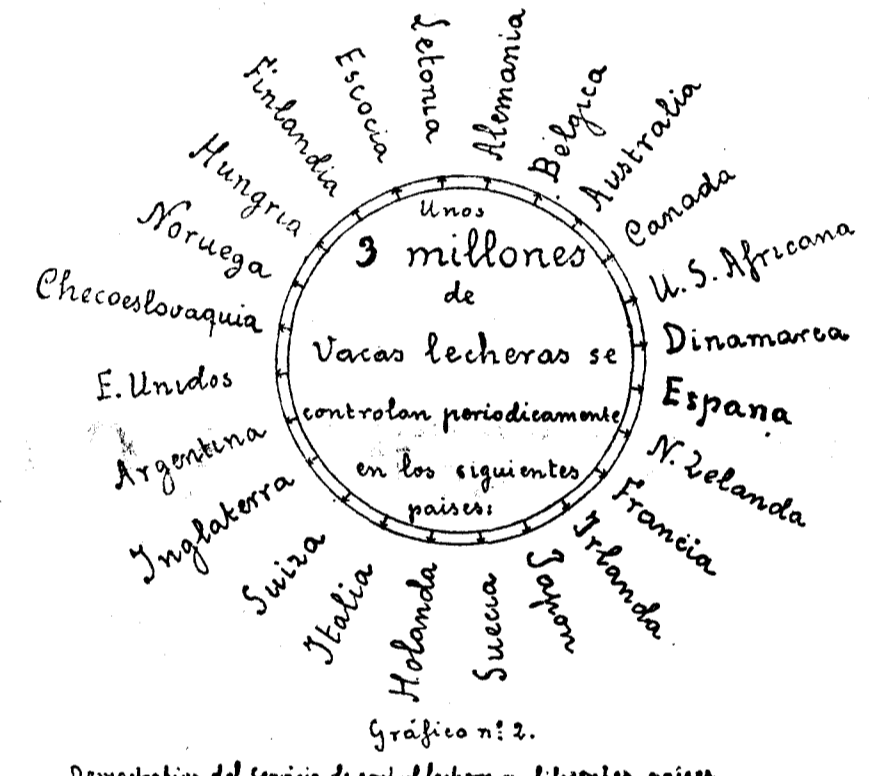 Unos
3 millones
de
Vacas lecheras se
controlan periodicamente
en los siguientes
paises:
Letonia
Alemania
Bélgica
Australia
Canada
U. S. Africana
Dinamarca
España
N. Zelanda
Francia
Irlanda
Japon
Suecia
Holanda
Italia
Suiza
Inglaterra
Argentina
E. Unidos
Checoeslovaquia
Noruega
Hungria
Finlandia
Escocia
Gráfico n.º 2.
Demostrativo del servicio de control lechero en diferentes paises